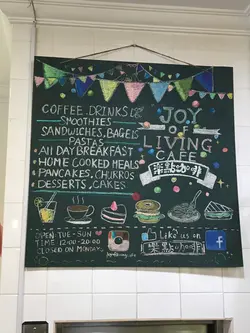 COFFEE. DRINKS
SMOOTHIES
SANDWICHES, BAGELS
PASTAS
• ALL DAY BREAKFAST
• HOME COOKED MEALS
• PANCAKES, CHURROS
DESSERTS, CAKES
JOY
OF
LIVING
CAFE
樂點咖啡
OPEN: TUE - SUN
TIME: 12:00-20:00
CLOSED ON MONDAY.
Like us on
樂點咖啡
f